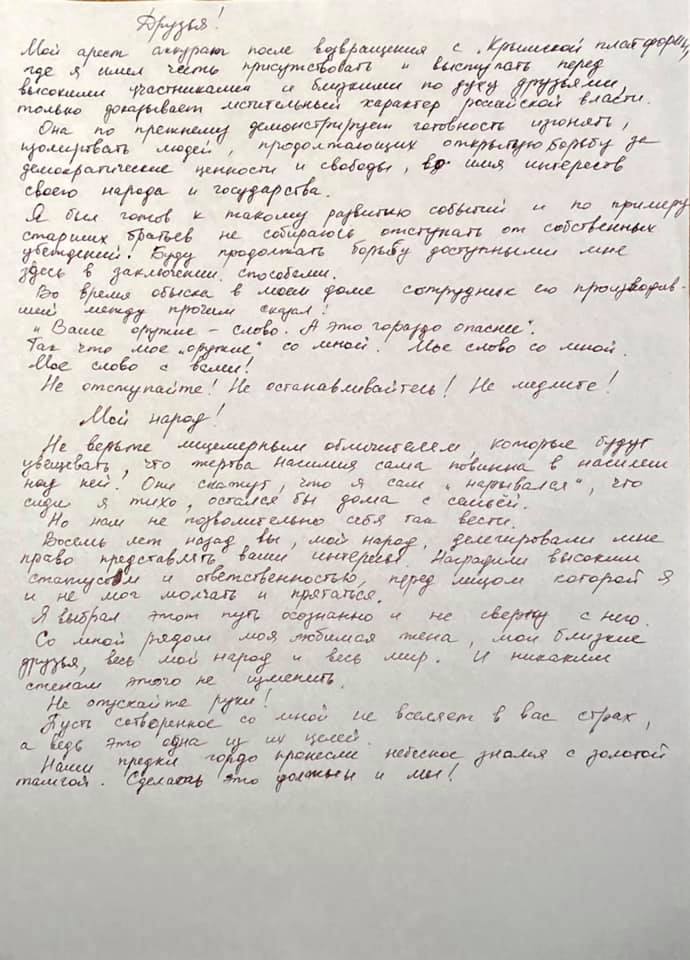 Друзья!
Мой арест аккурат после возвращения с „Крымской платформы,
где я имел честь присутствовать и выступать перед
высокими участниками и близкими по духу друзьями,
только доказывает мстительный характер российской власти.
Она по прежнему демонстрирует готовность изгонять,
изолировать людей, продолжающих открытую борьбу за
демократические ценности и свободы, во имя интересов
своего народа и государства.
Я был готов к такому развитию событий и по примеру
старших братьев не собираюсь отступать от собственных
убеждений! Буду продолжать борьбу доступными мне
здесь в заключении способами.
Во время обыска в моем доме сотрудник его производив-
ший между прочим сказал:
„Ваше оружие - слово. А это гораздо опаснее".
Так что мое „оружие" со мной. Мое слово со мной.
Мое слово с вами!
Не отступайте! Не останавливайтесь! Не медлите!
Мой народ!
Не верьте лицемерным обличителям, которые будут
увещевать, что жертва насилия сама повинна в насилии
над ней! Они скажут, что я сам „нарывался", что
сиди я тихо, остался бы дома с семьёй.
Но нам не позволительно себя так вести.
Восемь лет назад вы, мой народ, делегировали мне
право представлять ваши интересы. Наградили высоким
статусом и ответственностью, перед лицом которой я
и не мог молчать и прятаться.
Я выбрал этот путь осознанно и не сверну с него.
Со мной рядом моя любимая жена, мои близкие
друзья, весь мой народ и весь мир. И никаким
стенам этого не изменить.
Не опускайте руки!
Пусть сотворенное со мной не вселяет в вас страх,
а ведь это одна из их целей.
Наши предки гордо пронесли небесное знамя с золотой
тамгой. Сделать это должны и мы!